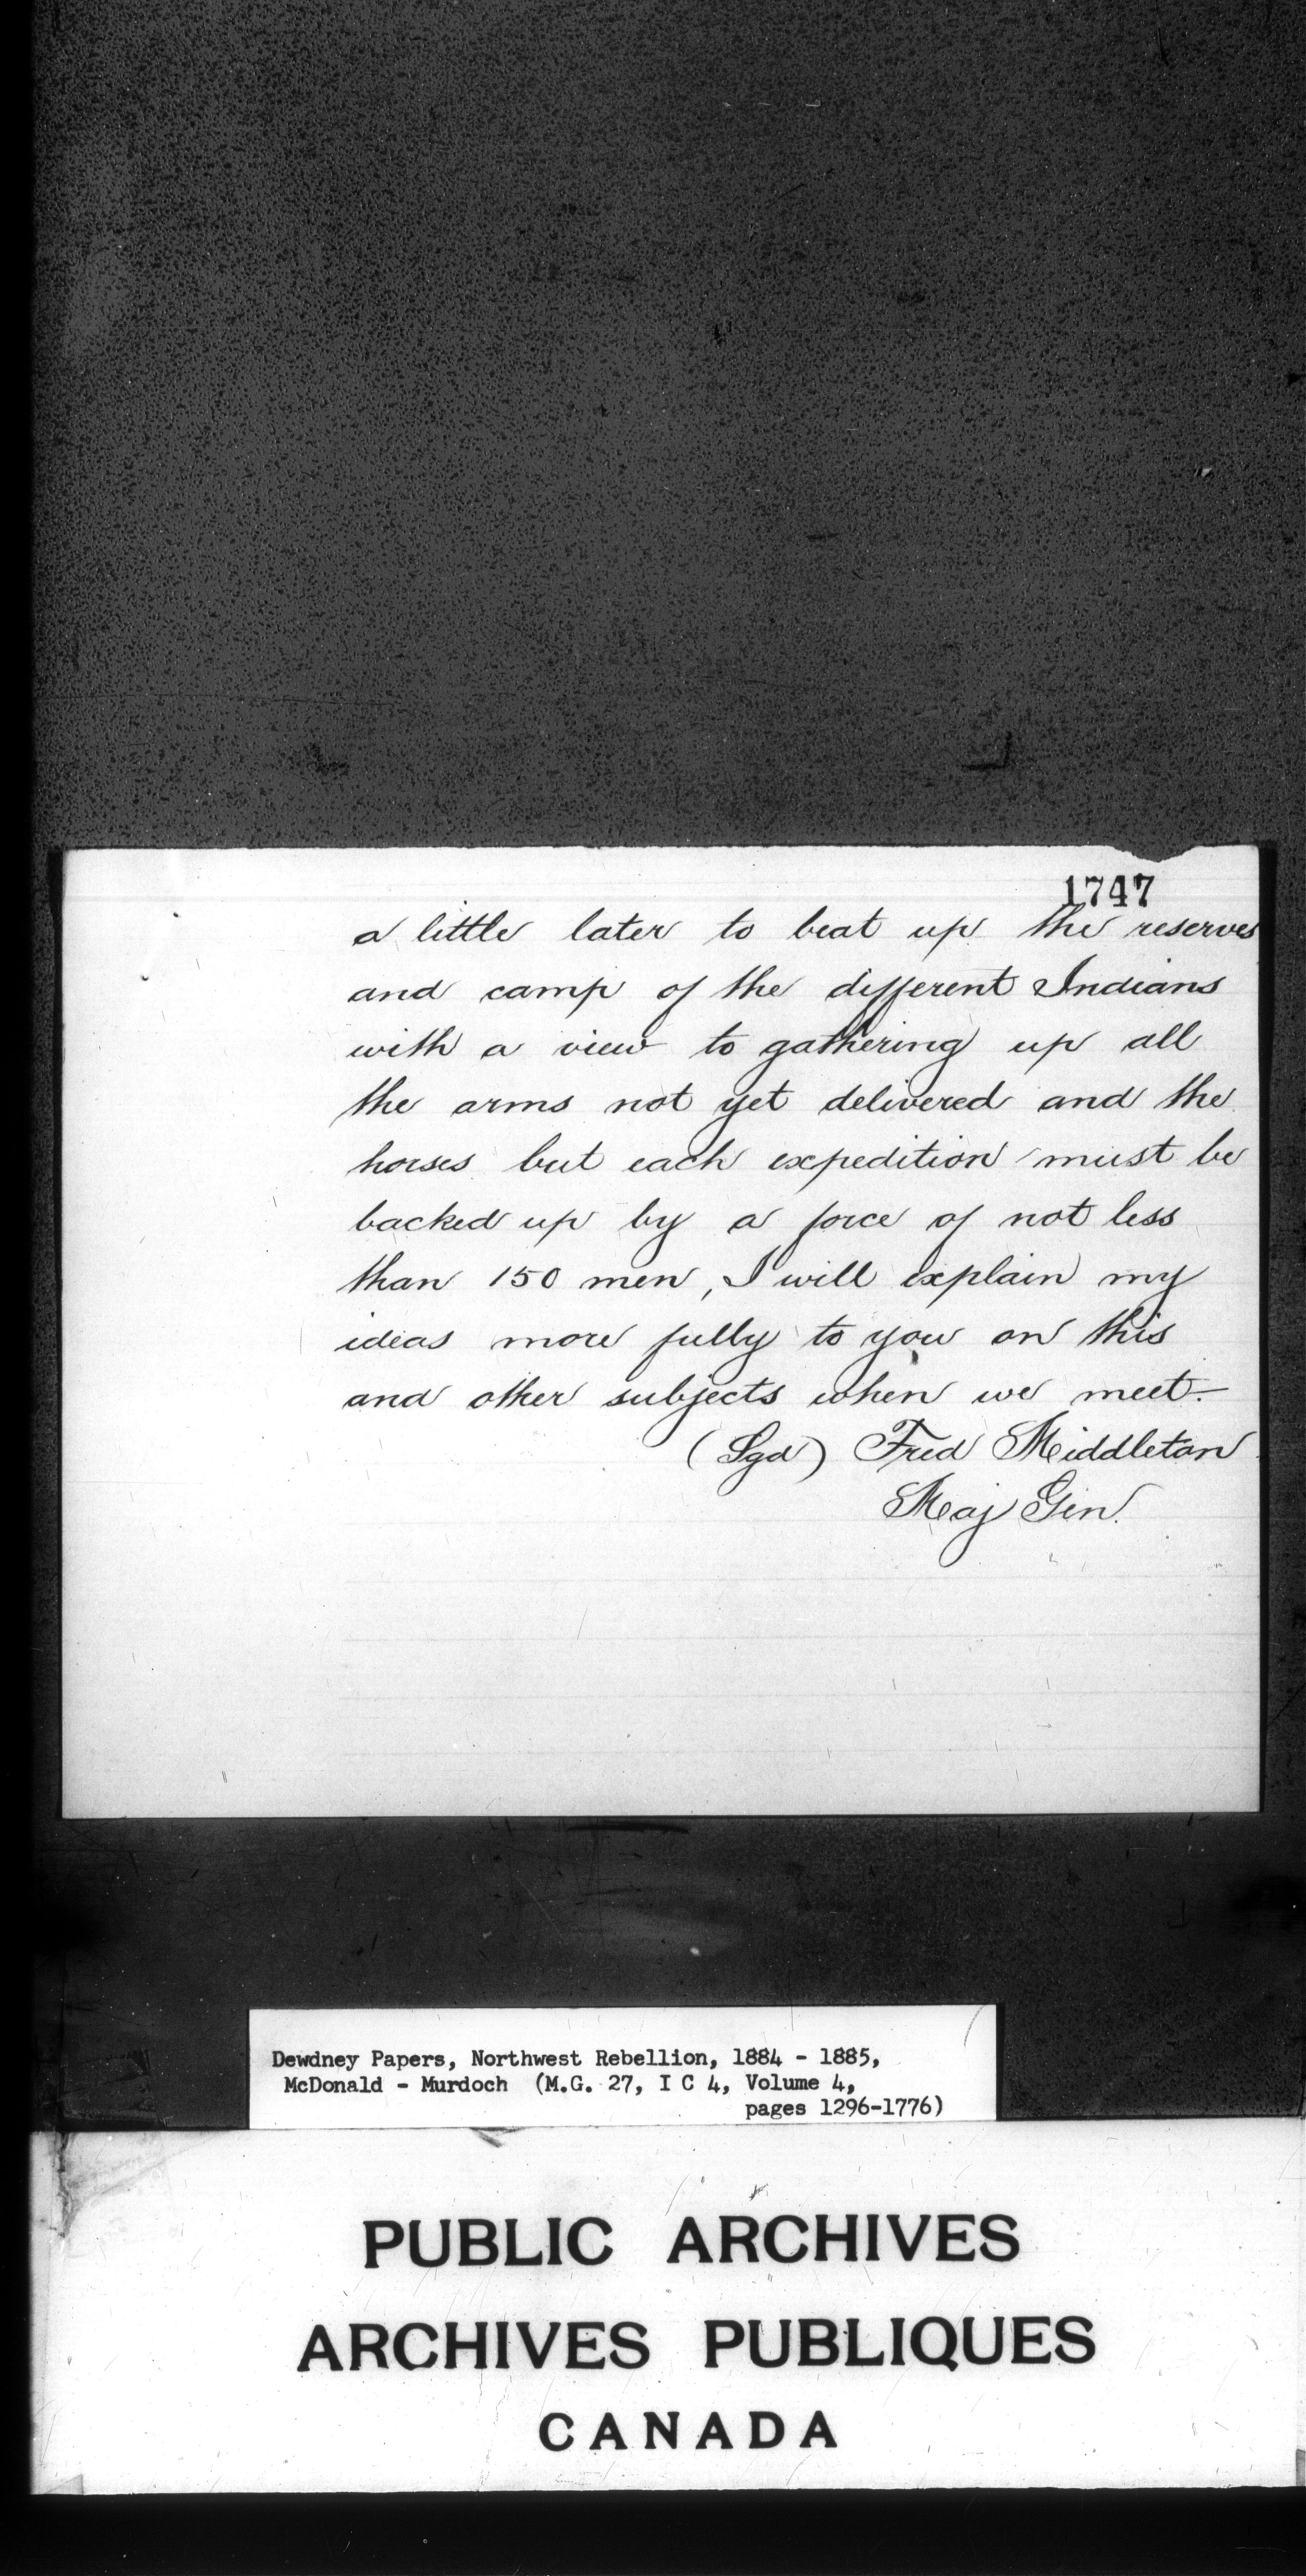 1747
a little later to beat up the reserves
and camp of the different Indians
with a view to gathering up all
the arms not yet delivered and the
horses but each expedition must be
backed up by a force of not less
than 150 men, I will explain my
ideas more fully to you on this
and other subjects when we meet.
(Sgd) Fred Middleton
Maj Gen.
Dewdney Papers, Northwest Rebellion, 1884 - 1885,
McDonald - Murdoch (M.G. 27, I C 4, Volume 4,
pages 1296-1776)
PUBLIC ARCHIVES
ARCHIVES PUBLIQUES
CANADA